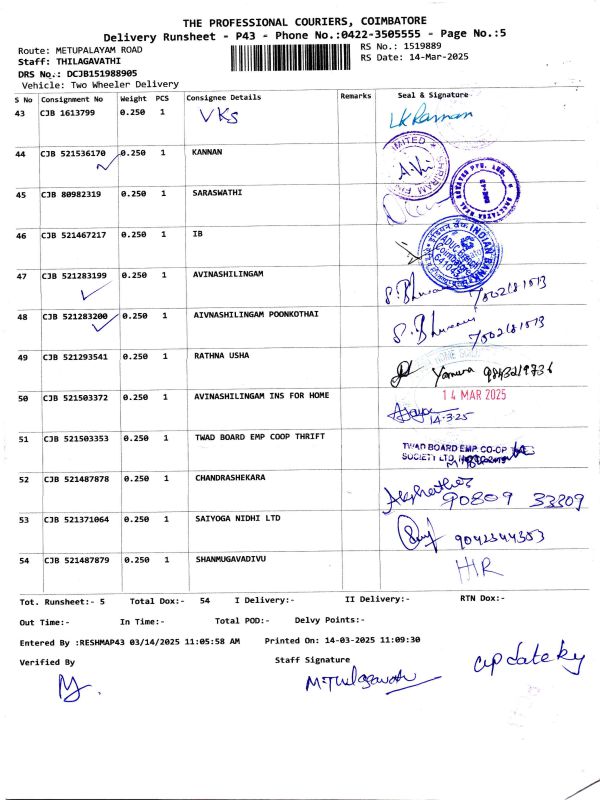 THE PROFESSIONAL COURIERS, COIMBATORE
Delivery Runsheet - P43 - Phone No.:0422-3505555 - Page No.:5
Route: METUPALAYAM ROAD
RS No.: 1519889
Staff: THILAGAVATHI
RS Date: 14-Mar-2025
DRS No.: DCJB151988905
Vehicle: Two Wheeler Delivery
S No Consignment No Weight PCS Consignee Details Remarks Seal & Signature
43 CJB 1613799 0.250 1 VKS
44 CJB 521536170 0.250 1 KANNAN
45 CJB 80982319 0.250 1 SARASWATHI
46 CJB 521467217 0.250 1 IB
INDIAN BANK
47 CJB 521283199 0.250 1 AVINASHILINGAM
48 CJB 521283200 0.250 1 AIVNASHILINGAM POONKOTHAI
49 CJB 521293541 0.250 1 RATHNA USHA
50 CJB 521503372 0.250 1 AVINASHILINGAM INS FOR HOME 14 MAR 2025
14-3-25
51 CJB 521503353 0.250 1 TWAD BOARD EMP COOP THRIFT
TWAD BOARD EMP. CO-OP
SOCIETY LTD,
52 CJB 521487878 0.250 1 CHANDRASHEKARA 90809 33809
53 CJB 521371064 0.250 1 SAIYOGA NIDHI LTD 9042344353
54 CJB 521487879 0.250 1 SHANMUGAVADIVU
Tot. Runsheet:- 5 Total Dox:- 54 I Delivery:- II Delivery:- RTN Dox:-
Out Time:- In Time:- Total POD:- Delvy Points:-
Entered By :RESHMAP43 03/14/2025 11:05:58 AM Printed On: 14-03-2025 11:09:30
Verified By Staff Signature
M.Thilagavathi